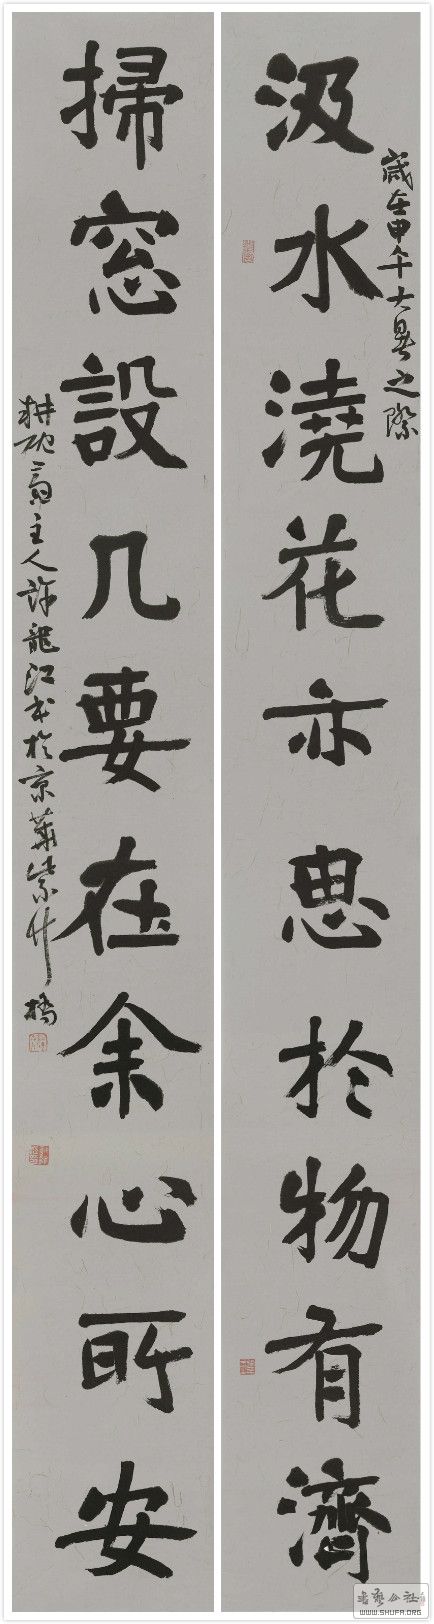 汲水澆花亦思於物有濟
歲在甲午大暑之際
掃窓設几要在余心所安
耕硯齋主人許龍江書於京華紫竹橋
书艺公社
WWW.SHUFA.ORG